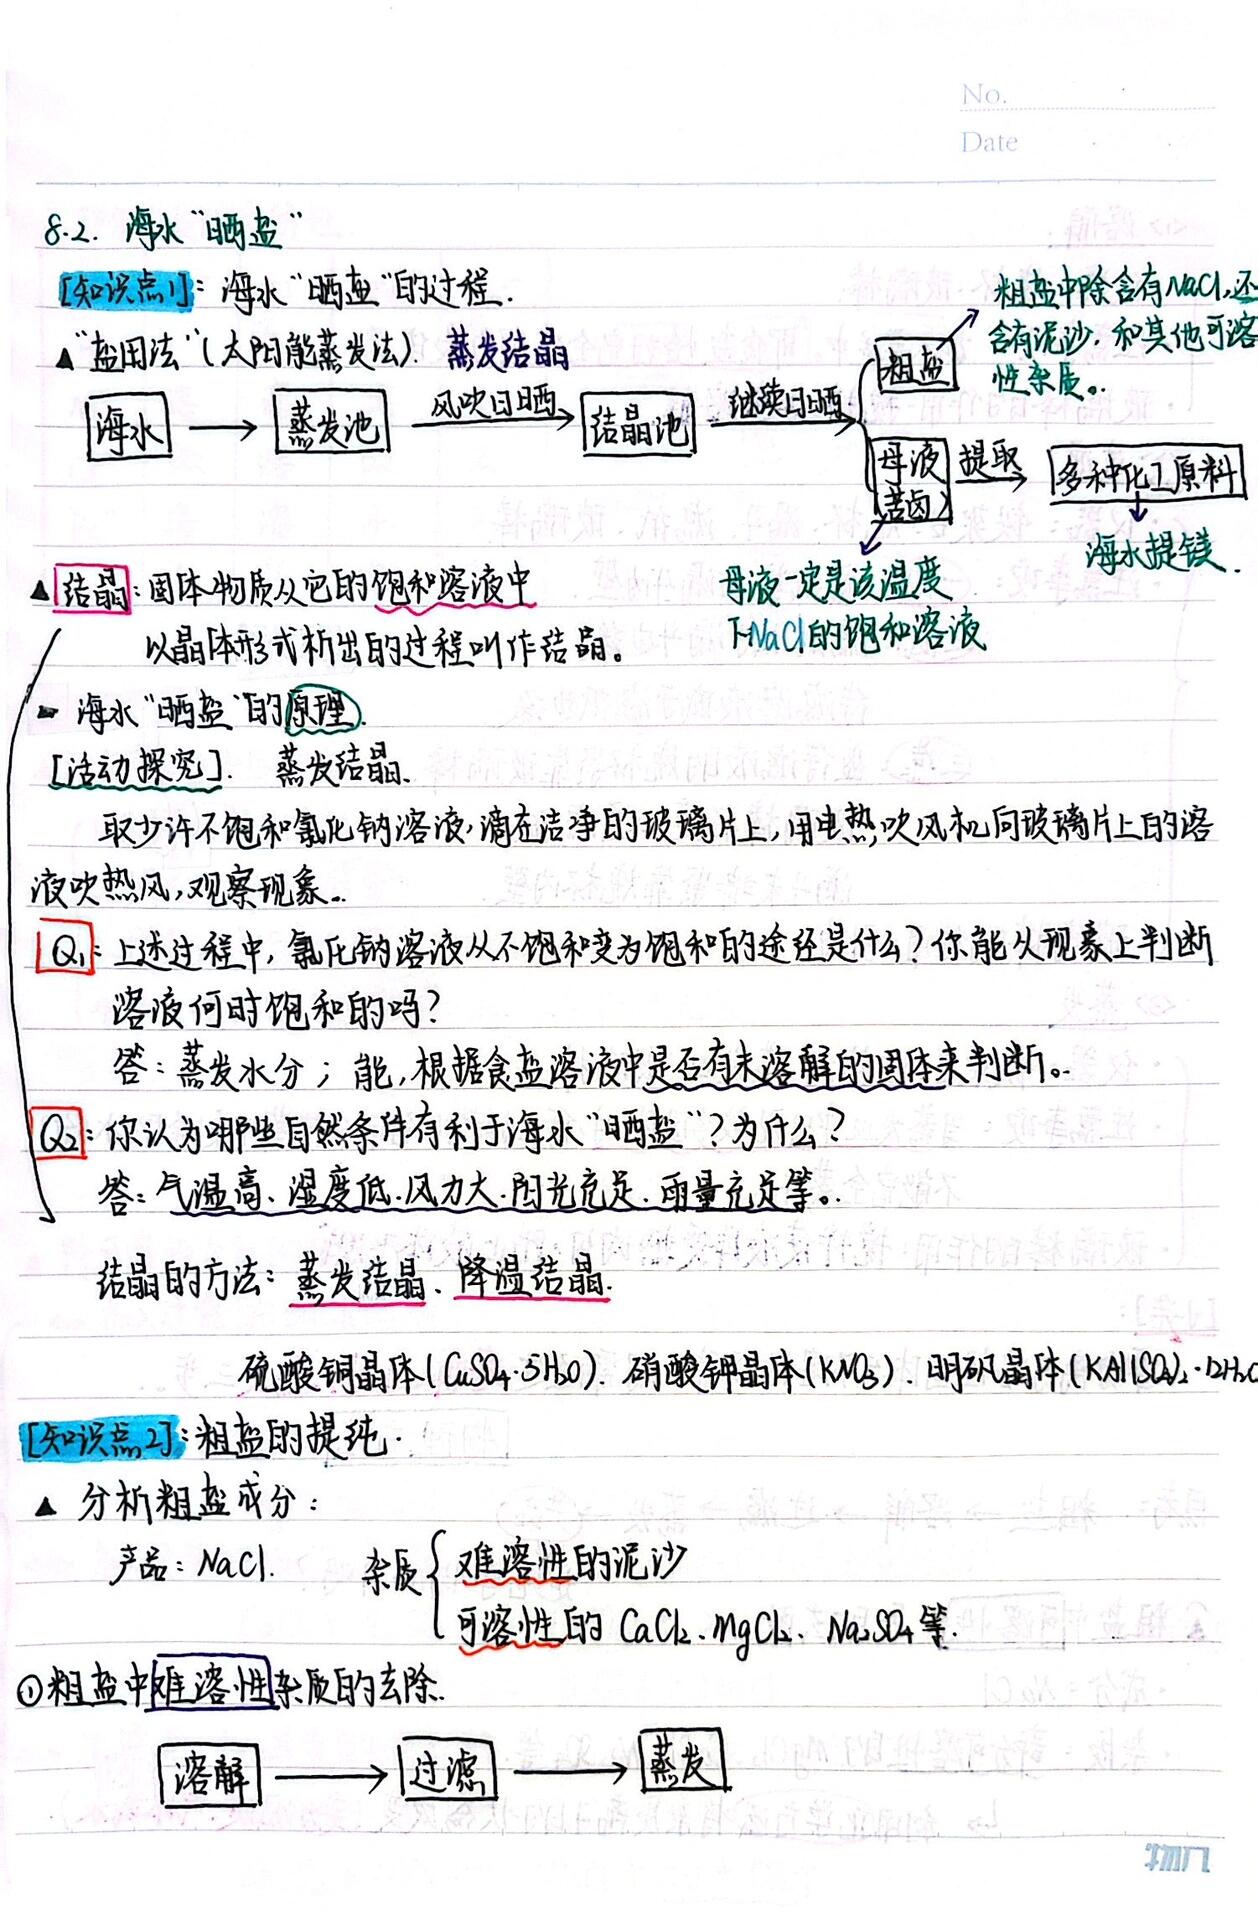 No.
Date
8.2. 海水“晒盐”
[知识点1]: 海水“晒盐”的过程.
▲“盐田法”(太阳能蒸发法). 蒸发结晶
粗盐中除含有NaCl,还
含有泥沙,和其他可溶
性杂质。
海水 → 蒸发池 风吹日晒→ 结晶池 继续日晒→ 粗盐
母液(苦卤) 提取→ 多种化工原料
海水提镁.
母液一定是该温度
下NaCl的饱和溶液
▲结晶: 固体物质从它的饱和溶液中
以晶体形式析出的过程叫作结晶。
- 海水“晒盐”的原理.
[活动探究]. 蒸发结晶.
取少许不饱和氯化钠溶液,滴在洁净的玻璃片上,用电热吹风机向玻璃片上的溶
液吹热风,观察现象。
Q1: 上述过程中,氯化钠溶液从不饱和变为饱和的途径是什么?你能从现象上判断
溶液何时饱和的吗?
答: 蒸发水分; 能,根据食盐溶液中是否有未溶解的固体来判断。
Q2: 你认为哪些自然条件有利于海水“晒盐”?为什么?
答: 气温高、湿度低、风力大、阳光充足、雨量充足等。
结晶的方法: 蒸发结晶、降温结晶.
硫酸铜晶体(CuSO4·5H2O). 硝酸钾晶体(KNO3). 明矾晶体(KAl(SO4)2·12H2O
[知识点2]: 粗盐的提纯.
▲ 分析粗盐成分:
产品: NaCl. 杂质{ 难溶性的泥沙
可溶性的 CaCl2、MgCl2、Na2SO4等.
①粗盐中难溶性杂质的去除.
溶解 → 过滤 → 蒸发